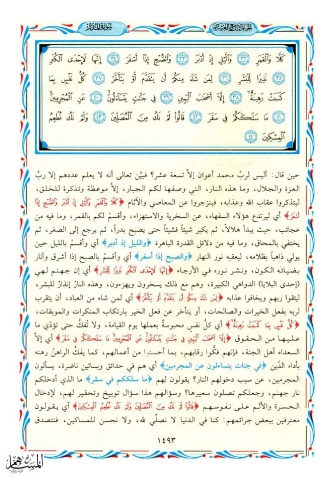 سورة المدثر
كَلَّا وَالْقَمَرِ ﴿٣٢﴾ وَاللَّيْلِ إِذْ أَدْبَرَ ﴿٣٣﴾ وَالصُّبْحِ إِذَا أَسْفَرَ ﴿٣٤﴾ إِنَّهَا لَإِحْدَى الْكُبَرِ
﴿٣٥﴾ نَذِيرًا لِلْبَشَرِ ﴿٣٦﴾ لِمَنْ شَاءَ مِنْكُمْ أَنْ يَتَقَدَّمَ أَوْ يَتَأَخَّرَ ﴿٣٧﴾ كُلُّ نَفْسٍ بِمَا
كَسَبَتْ رَهِينَةٌ ﴿٣٨﴾ إِلَّا أَصْحَابَ الْيَمِينِ ﴿٣٩﴾ فِي جَنَّاتٍ يَتَسَاءَلُونَ ﴿٤٠﴾ عَنِ الْمُجْرِمِينَ
﴿٤١﴾ مَا سَلَكَكُمْ فِي سَقَرَ ﴿٤٢﴾ قَالُوا لَمْ نَكُ مِنَ الْمُصَلِّينَ ﴿٤٣﴾ وَلَمْ نَكُ نُطْعِمُ
الْمِسْكِينَ ﴿٤٤﴾
حين قال: أليس لربِّ محمد أعوان إلاَّ تسعة عشر؟ فبيَّن تعالى أنه لا يعلم عددهم إلا ربُّ
العزة والجلال، وما هذه النار، التي وصفها لكم الجبار، إلاَّ موعظة وتذكرة للخلق،
ليتذكروا عقاب الله وعذابه، فينزجروا عن المعاصي والآثام ﴿كَلَّا وَالْقَمَرِ وَاللَّيْلِ إِذْ أَدْبَرَ وَالصُّبْحِ إِذَا
أَسْفَرَ﴾ أي ليرتدع هؤلاء السفهاء، عن السخرية والاستهزاء، وأُقسمُ لكم بالقمر، وما فيه من
عجائب، حيث يبدأ هلالاً، ثم يكبر شيئاً فشيئاً حتى يصبح بدراً، ثم يرجع إلى الصغر، ثم
يختفي بالمحاق، وما فيه من دلائل القدرة الباهرة ﴿والليل إذ أدبر﴾ أي وأقسمُ بالليل حين
يولي ذاهباً بظلامه، ليعقبه نور النهار ﴿والصبح إذا أسفر﴾ أي وأقسمُ بالصبح إذا أشرق وأنار
بضيائه الكون، ونشر نوره في الأرجاء ﴿إِنَّهَا لَإِحْدَى الْكُبَرِ نَذِيرًا لِلْبَشَرِ﴾ أي إن جهنم لهي
(إحدى البلايا) الدواهي الكبيرة، وهم مع ذلك يسخرون ويهزءون، وهذه النار إنذارٌ للبشر،
ليتقوا ربهم ويخافوا عذابه ﴿لِمَنْ شَاءَ مِنْكُمْ أَنْ يَتَقَدَّمَ أَوْ يَتَأَخَّرَ﴾ أي لمن شاء من العباد، أن يتقرب
لربه بفعل الخيرات والصالحات، أو يتأخر عن فعل الخير بارتكاب المنكرات والموبقات،
﴿كُلُّ نَفْسٍ بِمَا كَسَبَتْ رَهِينَةٌ﴾ أي كلُّ نفسٍ محبوسةٌ بعملها يوم القيامة، ولا تُفكُّ حتى تؤدِّي ما
عليها من الحقوق ﴿إِلَّا أَصْحَابَ الْيَمِينِ فِي جَنَّاتٍ يَتَسَاءَلُونَ عَنِ الْمُجْرِمِينَ مَا سَلَكَكُمْ فِي سَقَرَ﴾ أي إلاَّ
السعداء أهل الجنة، فإنهم فكُّوا رقابهم، بما أحسنوا من أعمالهم، كما يفكُّ الراهنُ رهنه
بأداء الدَّين ﴿في جنات يتساءلون عن المجرمين﴾ أي هم في حدائق وبساتين ناضرة، يسألون
المجرمين، عن سبب دخولهم النار؟ يقولون لهم ﴿ما سلككم في سقر﴾ ما الذي أدخلكم
نار جهنم، وجعلكم تصلون سعيرها؟ وسؤالهم هذا سؤال توبيخ وتحقير لهم، لإدخال
الحسرة والألم على نفوسهم ﴿قَالُوا لَمْ نَكُ مِنَ الْمُصَلِّينَ وَلَمْ نَكُ نُطْعِمُ الْمِسْكِينَ﴾ أي يقولون
معترفين ببعض جرائمهم: كنا في الدنيا لا نصلِّي لله، ولا نحسن للمساكين، فنتصدق
١٤٩٣